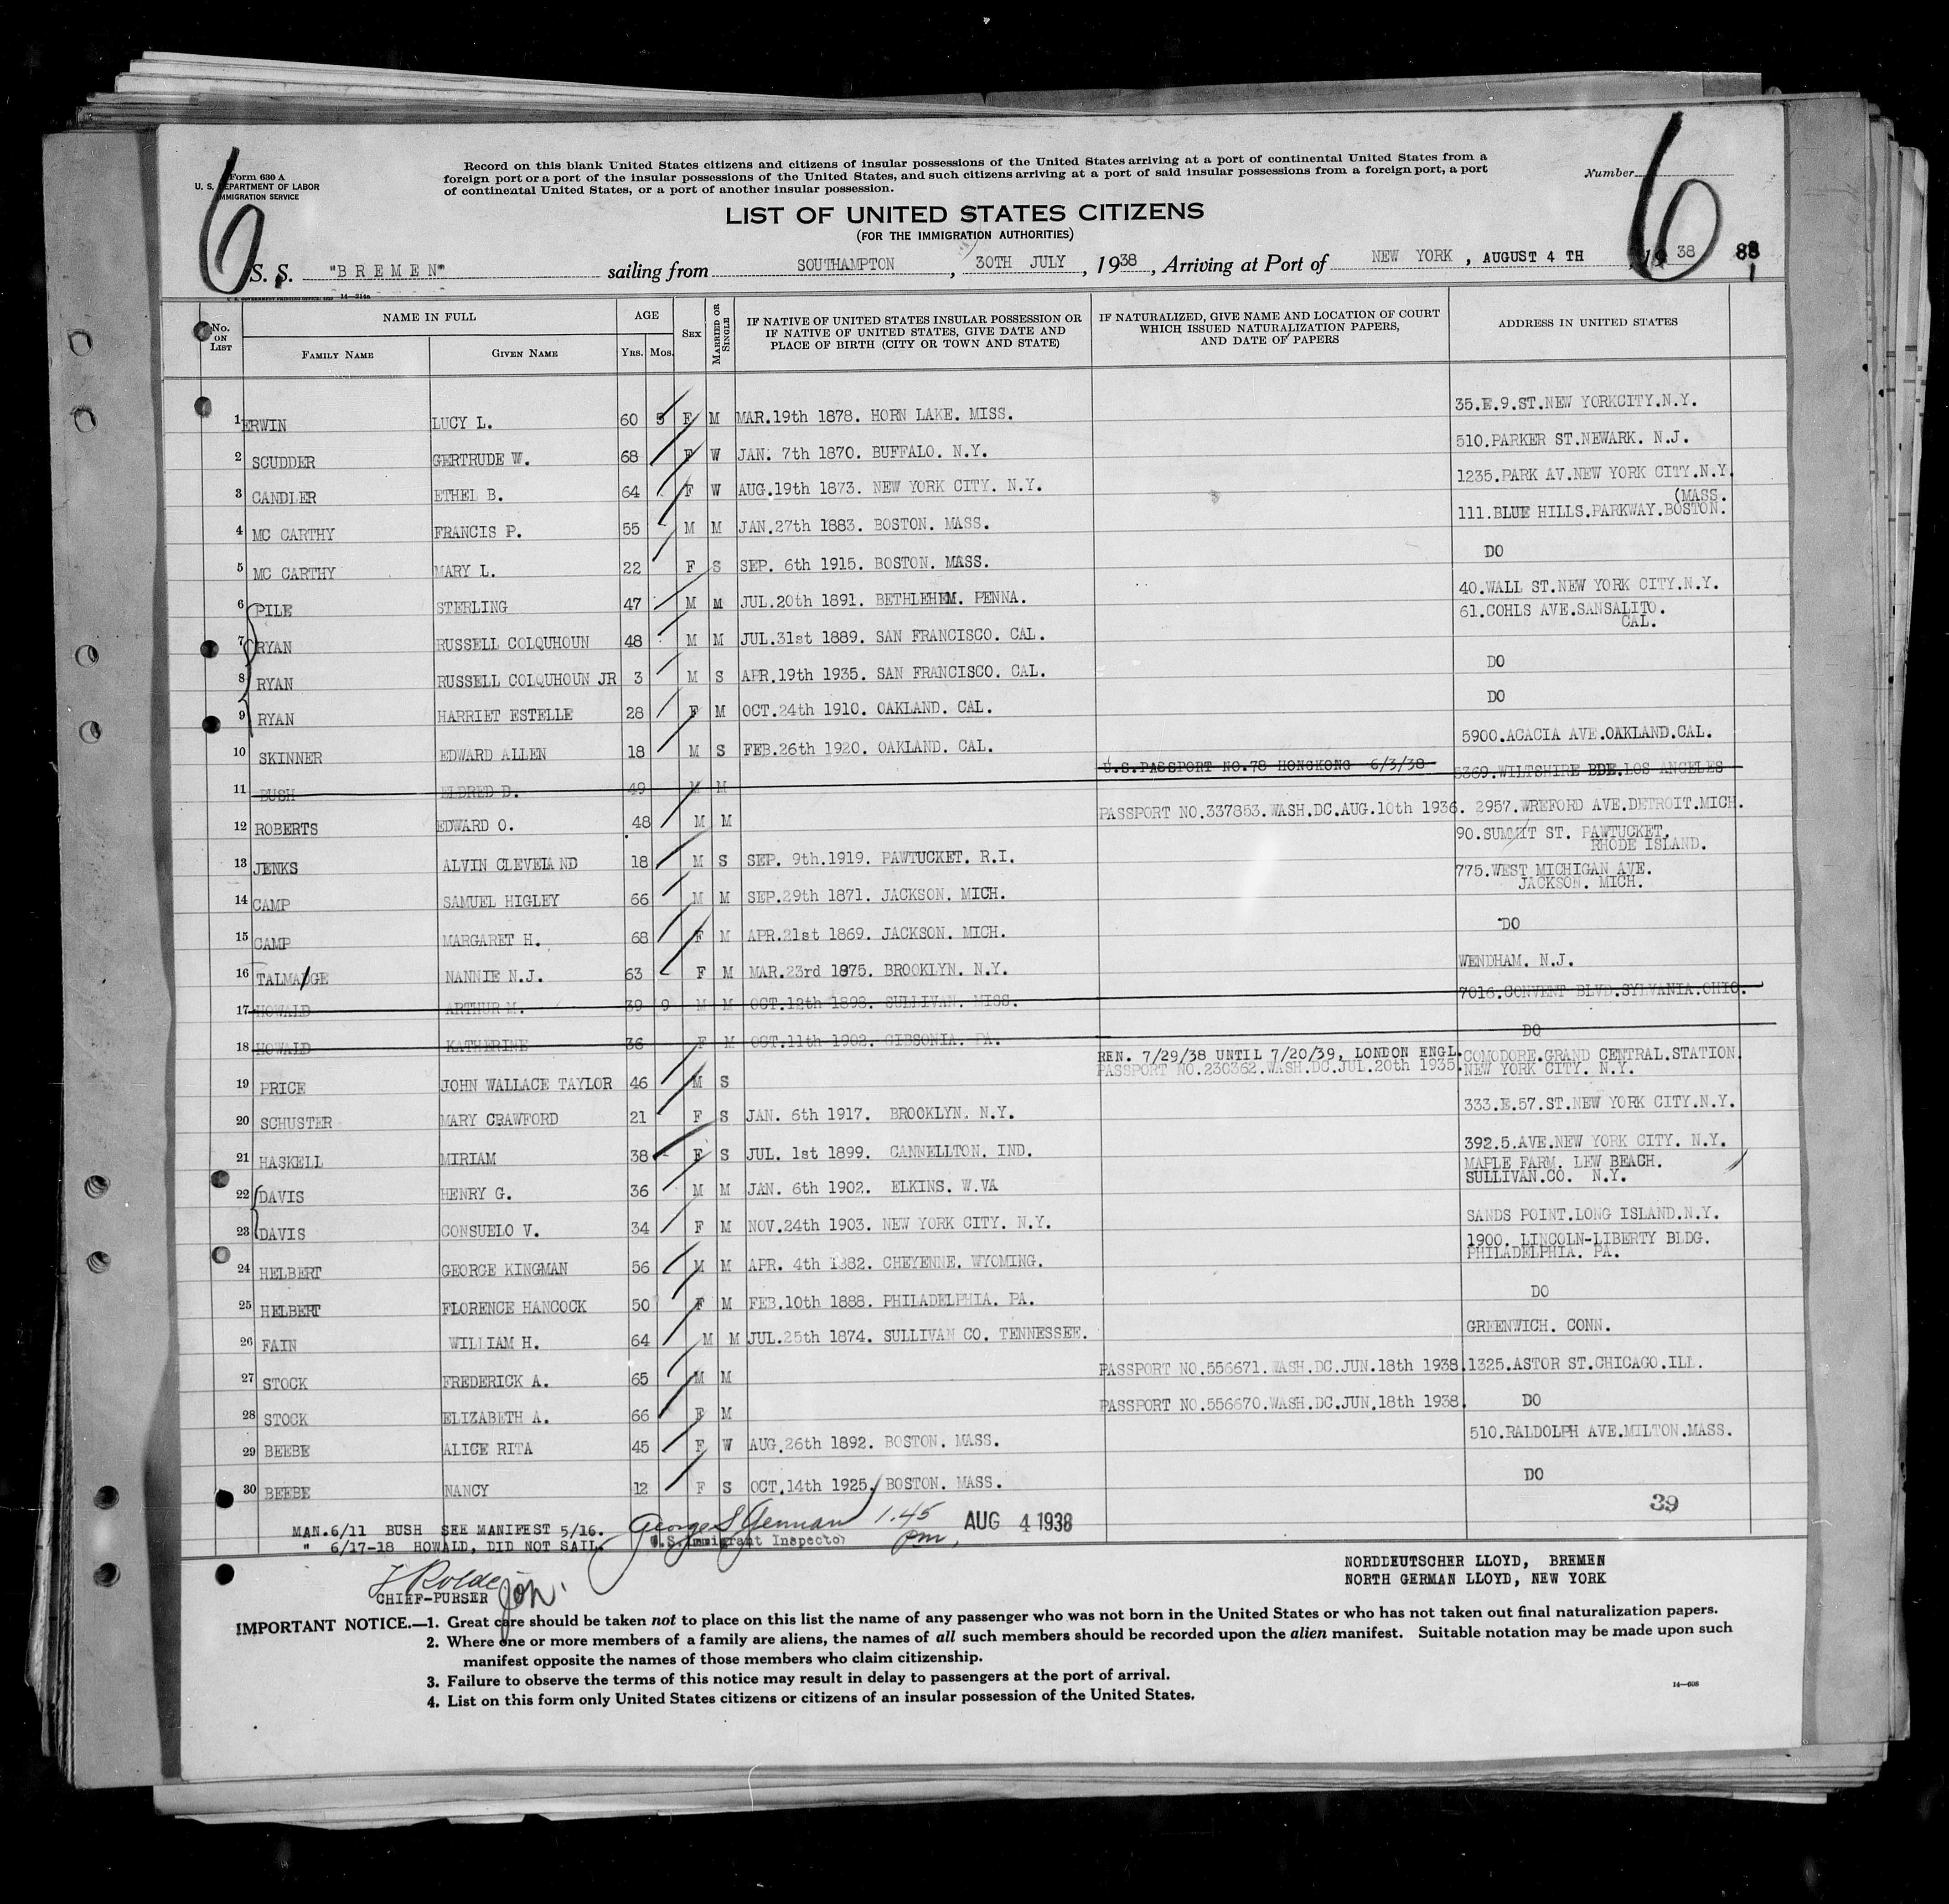 6
6
Form 630 A
U. S. DEPARTMENT OF LABOR
IMMIGRATION SERVICE
Record on this blank United States citizens and citizens of insular possessions of the United States arriving at a port of continental United States from a
foreign port or a port of the insular possessions of the United States, and such citizens arriving at a port of said insular possessions from a foreign port, a port
of continental United States, or a port of another insular possession.
Number
LIST OF UNITED STATES CITIZENS
(FOR THE IMMIGRATION AUTHORITIES)
S. S. "BREMEN" sailing from SOUTHAMPTON, 30TH JULY, 1938, Arriving at Port of NEW YORK, AUGUST 4 TH, 1938
No. ON LIST NAME IN FULL AGE SEX MARRIED OR SINGLE IF NATIVE OF UNITED STATES INSULAR POSSESSION OR IF NATIVE OF UNITED STATES, GIVE DATE AND PLACE OF BIRTH (CITY OR TOWN AND STATE) IF NATURALIZED, GIVE NAME AND LOCATION OF COURT WHICH ISSUED NATURALIZATION PAPERS, AND DATE OF PAPERS ADDRESS IN UNITED STATES
FAMILY NAME GIVEN NAME YRS. MOS.
1 ERWIN LUCY L. 60 5 F M MAR.19th 1878. HORN LAKE. MISS. 35.E.9.ST.NEW YORKCITY.N.Y.
2 SCUDDER GERTRUDE W. 68 F W JAN. 7th 1870. BUFFALO. N.Y. 510.PARKER ST.NEWARK. N.J.
3 CANDLER ETHEL B. 64 F W AUG.19th 1873. NEW YORK CITY. N.Y. 1235.PARK AV.NEW YORK CITY.N.Y.
4 MC CARTHY FRANCIS P. 55 M M JAN.27th 1883. BOSTON. MASS. 111.BLUE HILLS.PARKWAY.BOSTON. (MASS.
5 MC CARTHY MARY L. 22 F S SEP. 6th 1915. BOSTON. MASS. DO
6 PILE STERLING 47 M M JUL.20th 1891. BETHLEHEM. PENNA. 40.WALL ST.NEW YORK CITY.N.Y.
7 RYAN RUSSELL COLQUHOUN 48 M M JUL.31st 1889. SAN FRANCISCO. CAL. 61.COHLS AVE.SANSALITO. CAL.
8 RYAN RUSSELL COLQUHOUN JR 3 M S APR.19th 1935. SAN FRANCISCO. CAL. DO
9 RYAN HARRIET ESTELLE 28 F M OCT.24th 1910. OAKLAND. CAL. DO
10 SKINNER EDWARD ALLEN 18 M S FEB.26th 1920. OAKLAND. CAL. 5900.ACACIA AVE.OAKLAND.CAL.
11 BUSH ELDRED D. 49 M M U.S.PASSPORT NO.78 HONGKONG 6/3/38 5369.WILTSHIRE BDE.LOS ANGELES
12 ROBERTS EDWARD O. 48 M M PASSPORT NO.337853.WASH.DC.AUG.10th 1936. 2957.WREFORD AVE.DETROIT.MICH.
13 JENKS ALVIN CLEVELAND 18 M S SEP. 9th.1919. PAWTUCKET. R.I. 90.SUMMIT ST. PAWTUCKET. RHODE ISLAND.
14 CAMP SAMUEL HIGLEY 66 M M SEP.29th 1871. JACKSON. MICH. 775.WEST MICHIGAN AVE. JACKSON. MICH.
15 CAMP MARGARET H. 68 F M APR.21st 1869. JACKSON. MICH. DO
16 TALMADGE NANNIE N.J. 63 F M MAR.23rd 1875. BROOKLYN. N.Y. WENDHAM. N.J.
17 HOWALD ARTHUR M. 39 9 M M OCT.12th 1898. SULLIVAN. MISS. 7016.CONVENT BLVD.SYLVANIA.OHIO.
18 HOWALD KATHERINE 36 F M OCT.11th 1902. GIBSONIA. PA. DO
19 PRICE JOHN WALLACE TAYLOR 46 M S REN. 7/29/38 UNTIL 7/20/39, LONDON ENGL. PASSPORT NO.230362.WASH.DC.JUL.20th 1935. COMODORE.GRAND CENTRAL.STATION. NEW YORK CITY. N.Y.
20 SCHUSTER MARY CRAWFORD 21 F S JAN. 6th 1917. BROOKLYN. N.Y. 333.E.57.ST.NEW YORK CITY.N.Y.
21 HASKELL MIRIAM 38 F S JUL. 1st 1899. CANNELLTON. IND. 392.5.AVE.NEW YORK CITY. N.Y.
22 DAVIS HENRY G. 36 M M JAN. 6th 1902. ELKINS. W.VA MAPLE FARM. LEW BEACH. SULLIVAN.CO. N.Y.
23 DAVIS CONSUELO V. 34 F M NOV.24th 1903. NEW YORK CITY. N.Y. SANDS POINT.LONG ISLAND.N.Y.
24 HELBERT GEORGE KINGMAN 56 M M APR. 4th 1882. CHEYENNE. WYOMING. 1900. LINCOLN-LIBERTY BLDG. PHILADELPHIA. PA.
25 HELBERT FLORENCE HANCOCK 50 F M FEB.10th 1888. PHILADELPHIA. PA. DO
26 FAIN WILLIAM H. 64 M M JUL.25th 1874. SULLIVAN CO. TENNESSEE. GREENWICH. CONN.
27 STOCK FREDERICK A. 65 M M PASSPORT NO.556671.WASH.DC.JUN.18th 1938. 1325.ASTOR ST.CHICAGO.ILL.
28 STOCK ELIZABETH A. 66 F M PASSPORT NO.556670.WASH.DC.JUN.18th 1938. DO
29 BEEBE ALICE RITA 45 F W AUG.26th 1892. BOSTON. MASS. 510.RALDOLPH AVE.MILTON.MASS.
30 BEEBE NANCY 12 F S OCT.14th 1925. BOSTON. MASS. DO
39
MAN.6/11 BUSH SEE MANIFEST 5/16. 1.45 pm, AUG 4 1938
" 6/17-18 HOWALD, DID NOT SAIL. U.S.Immigrant Inspector
NORDDEUTSCHER LLOYD, BREMEN
NORTH GERMAN LLOYD, NEW YORK
CHIEF-PURSER
IMPORTANT NOTICE.—1. Great care should be taken not to place on this list the name of any passenger who was not born in the United States or who has not taken out final naturalization papers.
2. Where one or more members of a family are aliens, the names of all such members should be recorded upon the alien manifest. Suitable notation may be made upon such
manifest opposite the names of those members who claim citizenship.
3. Failure to observe the terms of this notice may result in delay to passengers at the port of arrival.
4. List on this form only United States citizens or citizens of an insular possession of the United States.
14—608